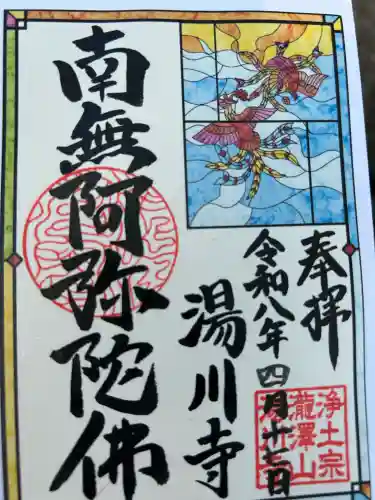 奉拝
令和八年四月廿七日
湯川寺
南無阿弥陀佛
浄土宗
瀧澤山